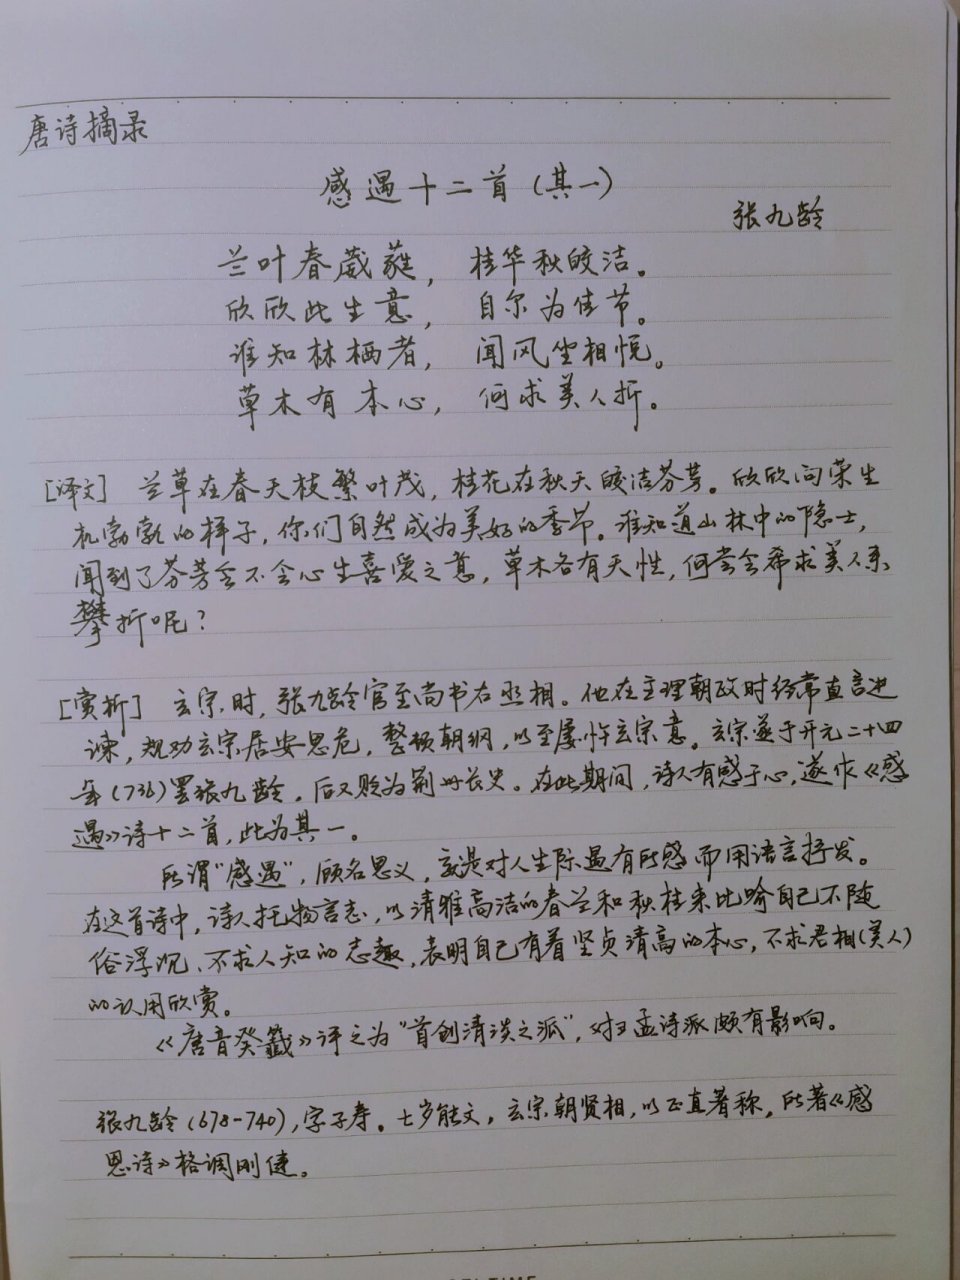 唐诗摘录
感遇十二首(其一)
张九龄
兰叶春葳蕤，桂华秋皎洁。
欣欣此生意，自尔为佳节。
谁知林栖者，闻风坐相悦。
草木有本心，何求美人折。
[译文] 兰草在春天枝繁叶茂，桂花在秋天皎洁芬芳。欣欣向荣生
机勃勃的样子，你们自然成为美好的季节。谁知道山林中的隐士，
闻到了芬芳会不会心生喜爱之意，草木各有天性，何尝会希求美人来
攀折呢？
[赏析] 玄宗时，张九龄官至尚书右丞相。他在主理朝政时经常直言进
谏，规劝玄宗居安思危，整顿朝纲，以至屡忤玄宗意。玄宗遂于开元二十四
年(736)罢张九龄。后又贬为荆州长史。在此期间，诗人有感于心，遂作《感
遇》诗十二首，此为其一。
所谓"感遇"，顾名思义，就是对人生际遇有所感而用语言抒发。
在这首诗中，诗人托物言志，以清雅高洁的春兰和秋桂来比喻自己不随
俗浮沉、不求人知的志趣，表明自己有着坚贞清高的本心，不求君相(美人)
的认用欣赏。
《唐音癸籤》评之为"首创清淡之派"，对王孟诗派颇有影响。
张九龄(678-740)，字子寿。七岁能文，玄宗朝贤相，以正直著称，所著《感
恩诗》格调刚健。